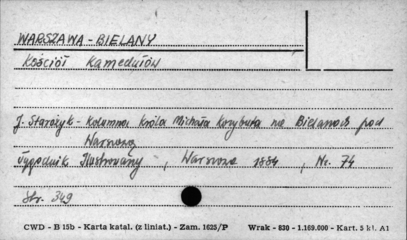 WARSZAWA - BIELANY
Kościół Kamedułów
J. Starożyk - Kolumna króla Michała Korybuta na Bielanach pod
Warszawą
Tygodnik Ilustrowany, Warszawa 1884, Nr. 74
Str. 349
CWD - B 15b - Karta katal. (z liniat.) - Zam. 1625/P Wrak - 830 - 1.169.000 - Kart. 5 kl. A1